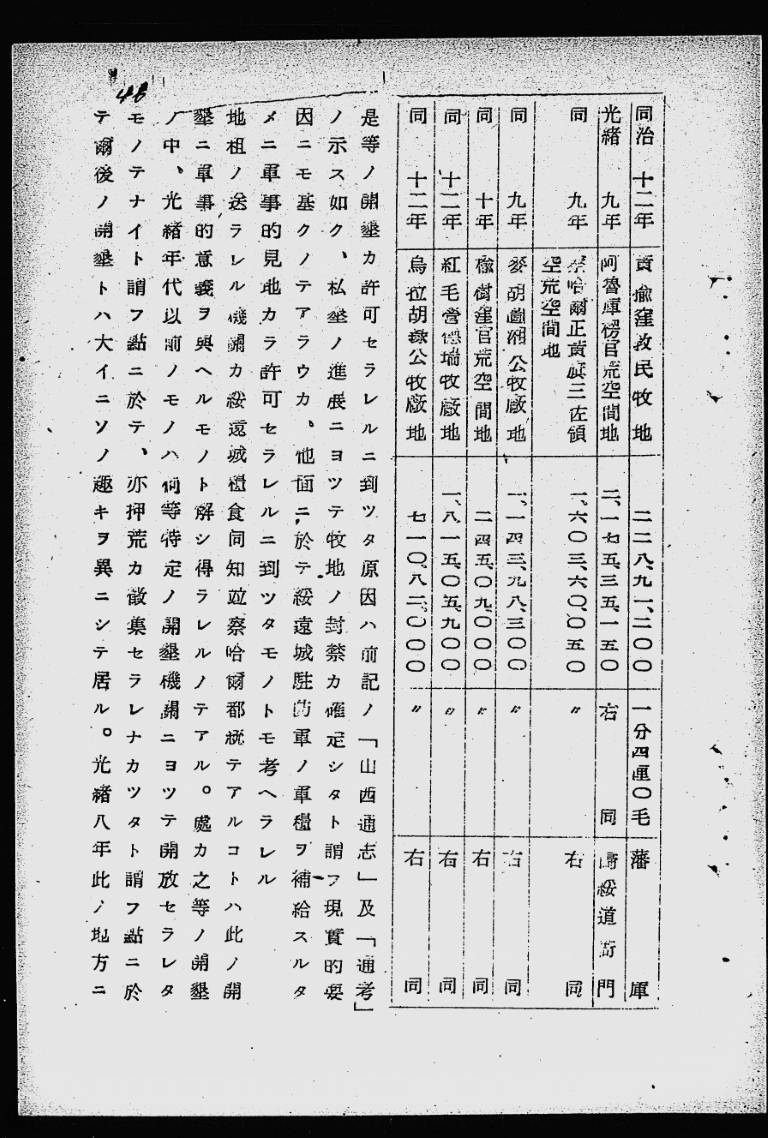 46
同治 十二年 黄牧民牧地 二二八、九一、二〇〇 一分四厘〇毛 藩庫
光緒 九年 阿魯庫楞官荒空閒地 二、一七五、三五、一五〇 右同 歸綏道衙門
同 九年 察哈爾正黃旗三佐領空荒空閒地 一、六〇三、六〇、〇五〇 〃 右同
同 九年 麥胡盧湘公牧廠地 一、一四三、九八、三〇〇 〃 右同
同 十年 楡樹窪官荒空閒地 二四五、〇九、〇〇〇 〃 右同
同 十二年 紅毛營德瑞牧廠地 一、八一五、〇五、九〇〇 〃 右同
同 十二年 烏拉胡公牧廠地 七一〇、八二、〇〇〇 〃 右同
是等ノ開墾カ許可セラレルニ到ツタ原因ハ前記ノ「山西通志」及「通考」
ノ示ス如ク、私墾ノ進展ニヨツテ牧地ノ封禁カ確定シタト謂フ現實的要
因ニモ基クノテアラウカ、他面ニ於テ綏遠城駐防軍ノ軍糧ヲ補給スルタ
メニ軍事的見地カラ許可セラレルニ到ツタモノトモ考ヘラレル
地租ノ送ラレル機關カ綏遠城糧食同知竝察哈爾都統テアルコトハ此ノ開
墾ニ軍事的意義ヲ與ヘルモノト解シ得ラレルノテアル。處カ之等ノ開墾
ノ中、光緒年代以前ノモノハ何等特定ノ開墾機關ニヨツテ開放セラレタ
モノテナイト謂フ點ニ於テ、亦押荒カ徴集セラレナカツタト謂フ點ニ於
テ爾後ノ開墾トハ大イニソノ趣キヲ異ニシテ居ル。光緒八年此ノ地方ニ